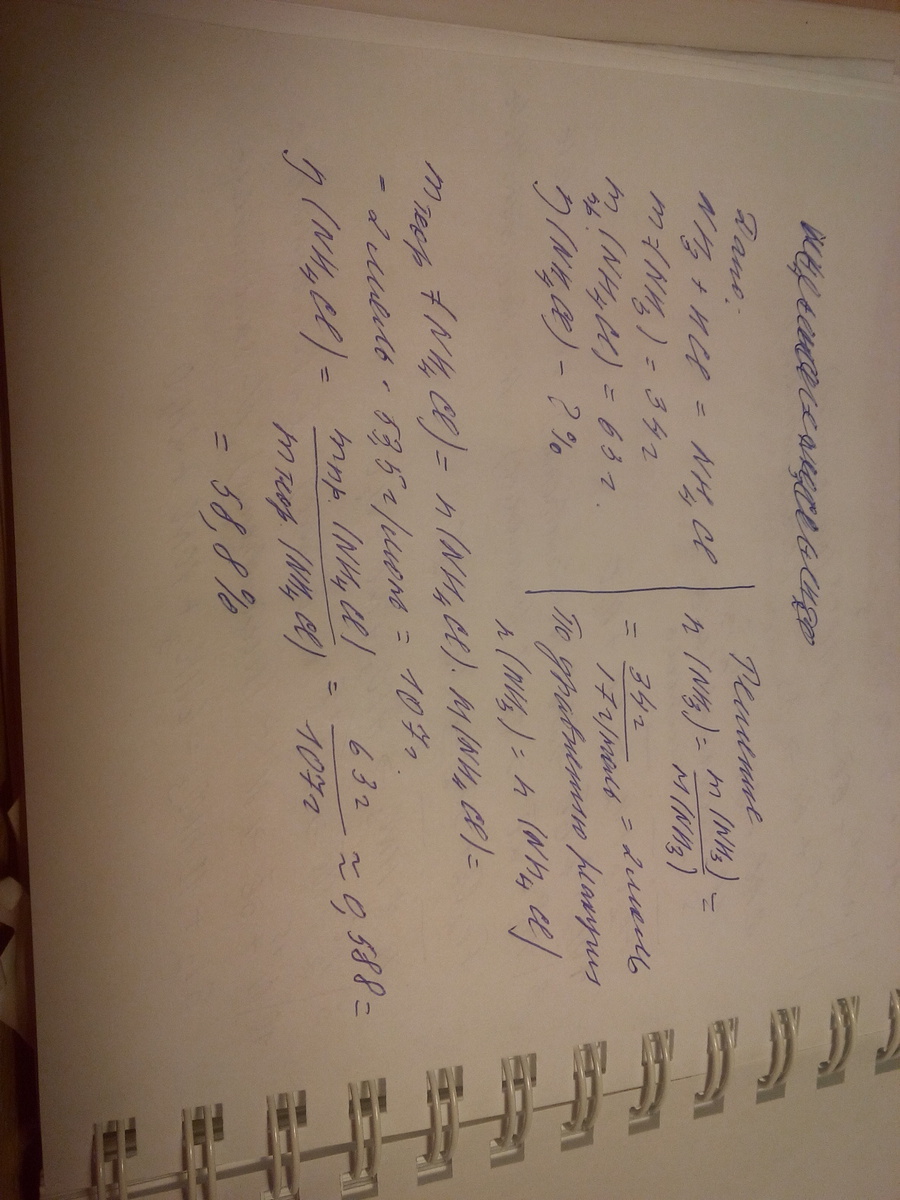 Дано:
NH₃ + HCl = NH₄Cl
m(NH₃) = 34г
m пр. (NH₄Cl) = 63г.
η(NH₄Cl) - ?%
Решение
n(NH₃) = m(NH₃) / M(NH₃) =
= 34г / 17г/моль = 2моль
По уравнению реакции
n(NH₃) = n(NH₄Cl)
m теор (NH₄Cl) = n(NH₄Cl) · M(NH₄Cl) =
= 2моль · 53,5г/моль = 107г.
η(NH₄Cl) = mпр. (NH₄Cl) / mтеор (NH₄Cl) = 63г / 107г ≈ 0,588 =
= 58,8%